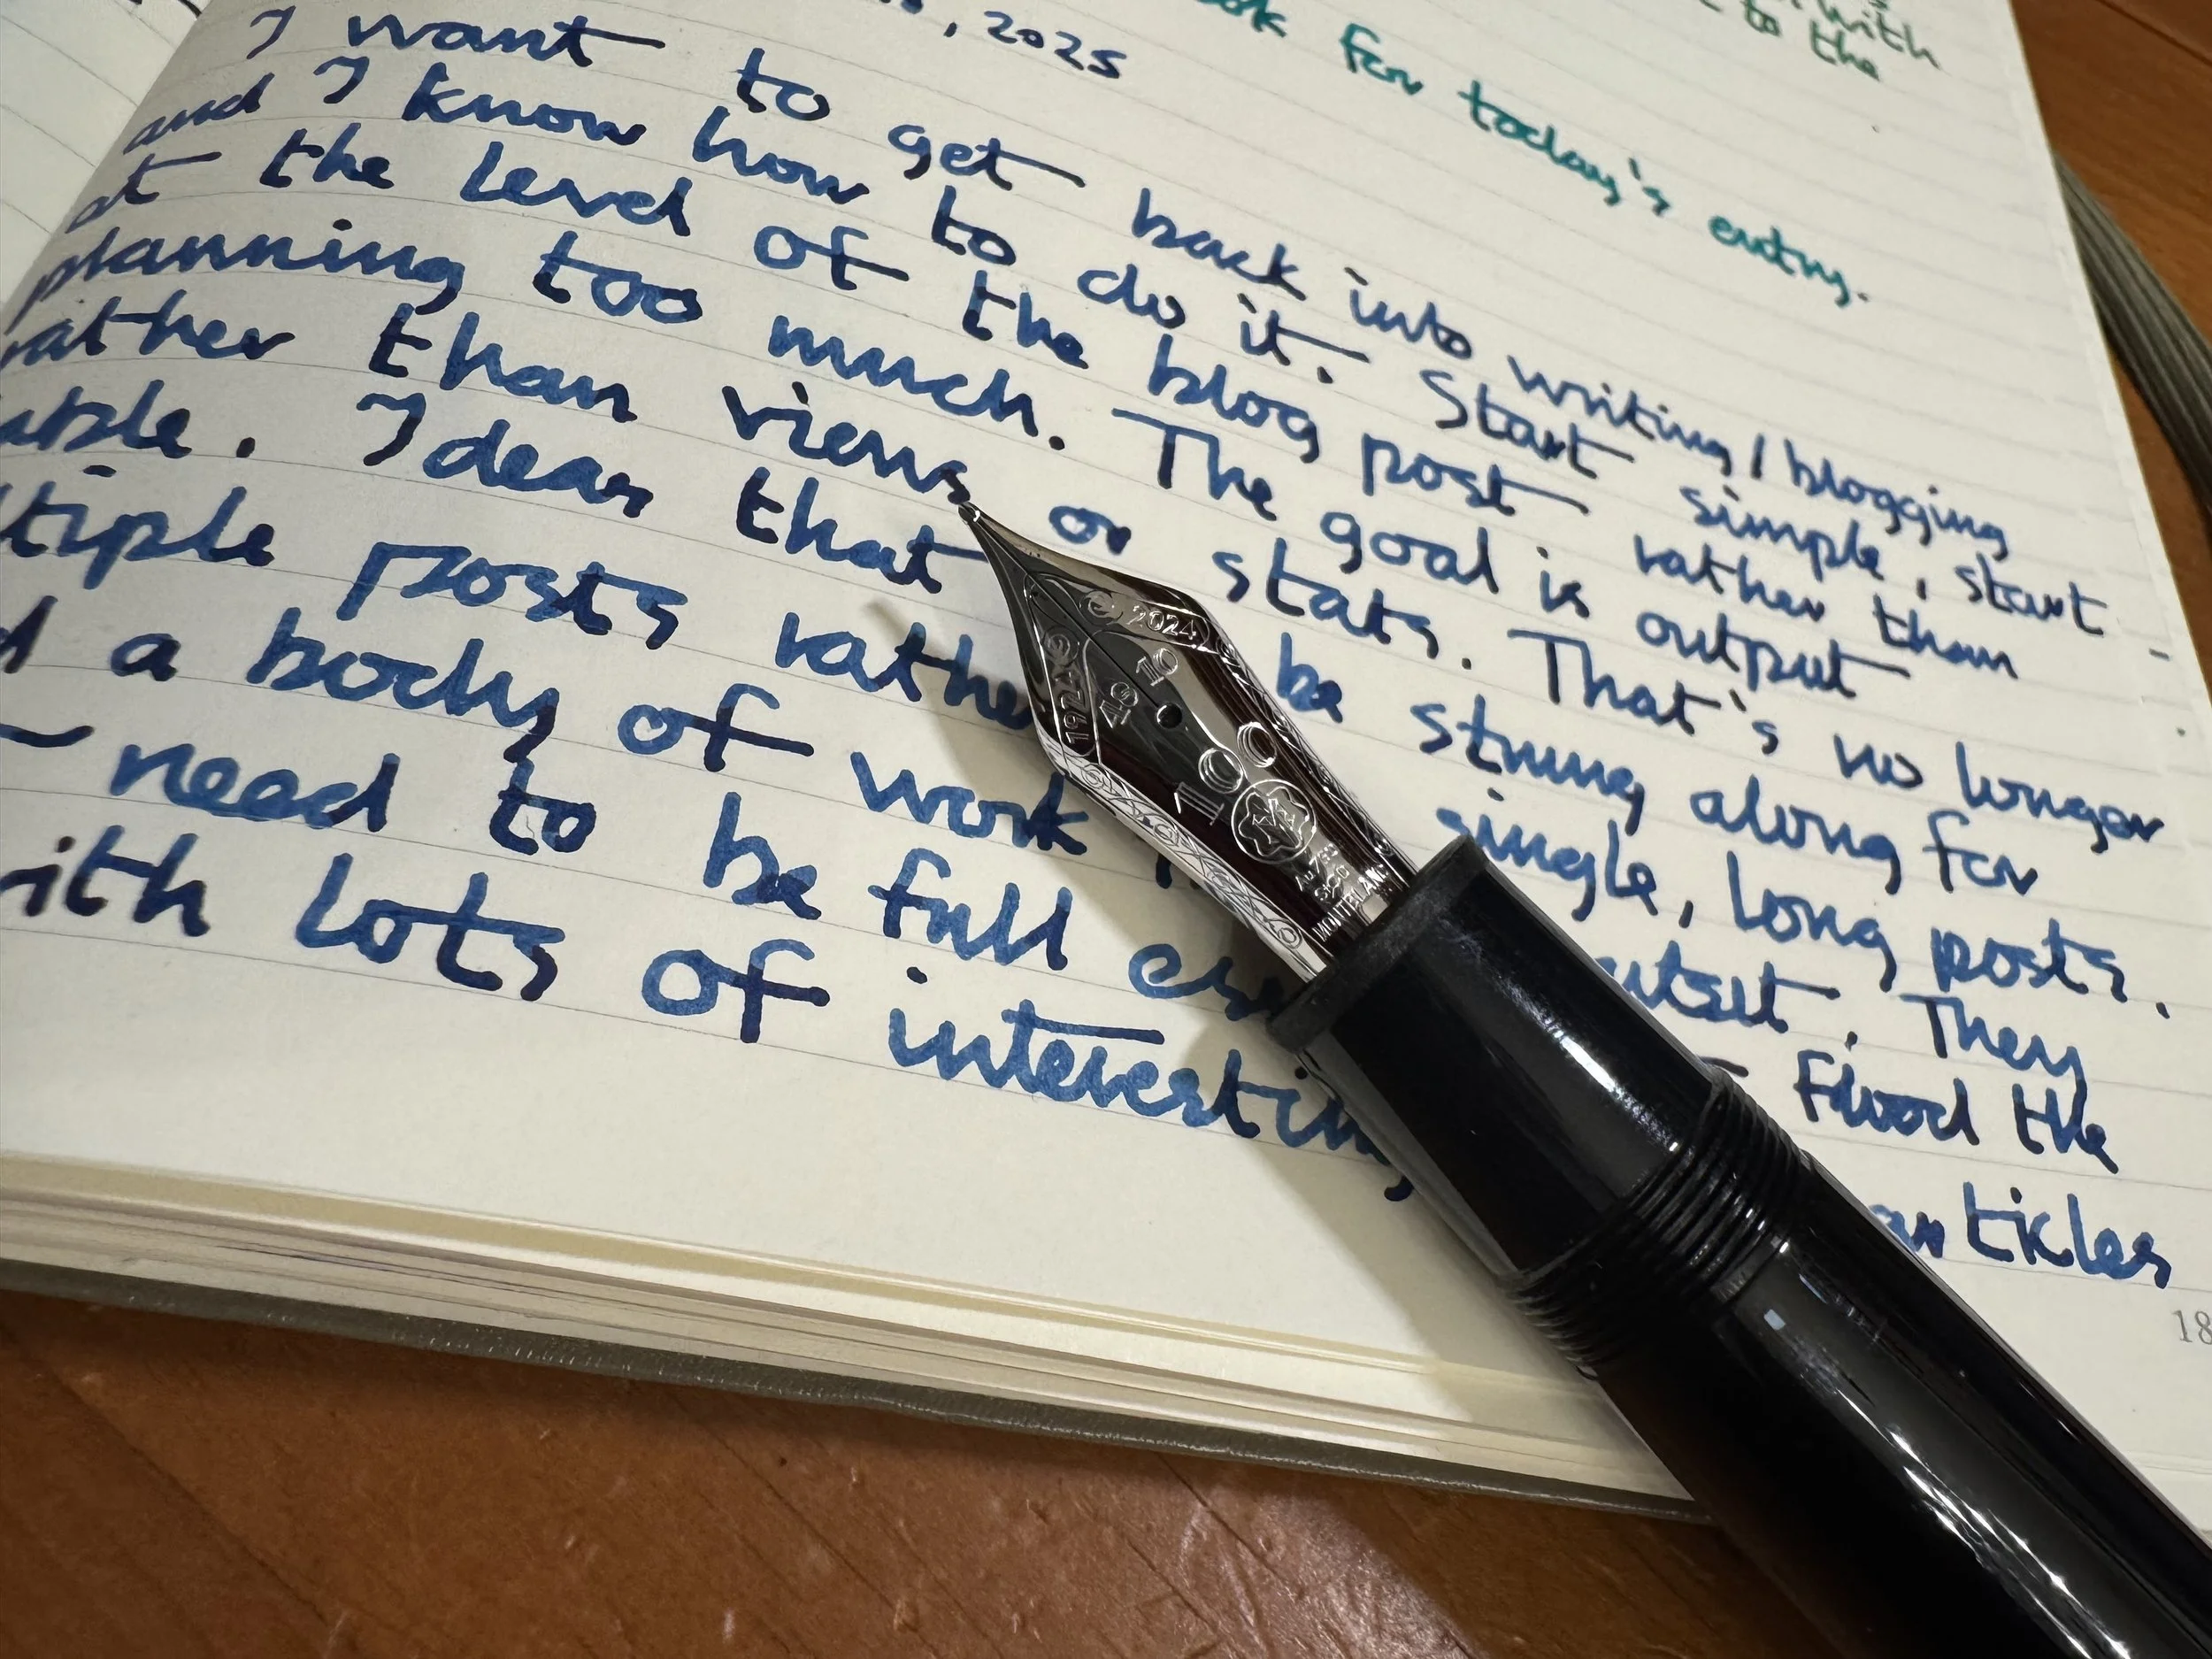 with
to the
for today's entry.
, 2025
I want to get back into writing / blogging
and I know how to do it. Start simple, start
at the level of the blog post rather than
planning too much. The goal is output
rather than views or stats. That's no longer
. Ideas that be strung along for
tiple posts rather single, long posts.
a body of work . They
need to be full flood the
ith lots of interesting articles
1924
2024
4810
100
Au 750
MONTBLANC
18